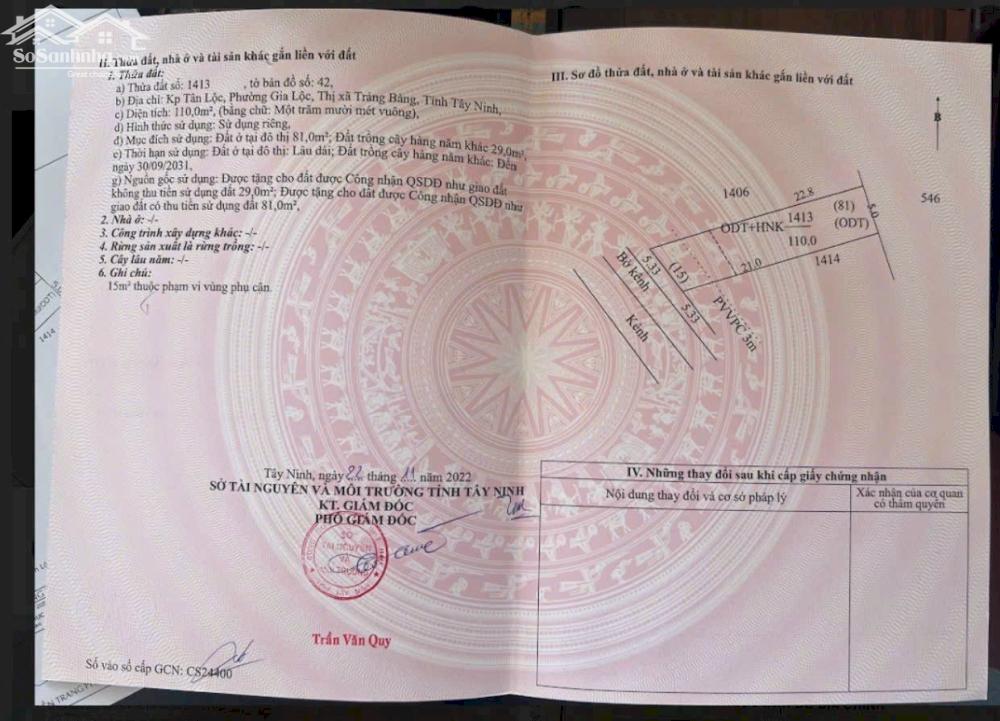 SoSanNha
II. Thửa đất, nhà ở và tài sản khác gắn liền với đất
1. Thửa đất:
a) Thửa đất số: 1413 , tờ bản đồ số: 42,
b) Địa chỉ: Kp Tân Lộc, Phường Gia Lộc, Thị xã Trảng Bàng, Tỉnh Tây Ninh,
c) Diện tích: 110,0m², (bằng chữ: Một trăm mười mét vuông),
d) Hình thức sử dụng: Sử dụng riêng,
đ) Mục đích sử dụng: Đất ở tại đô thị 81,0m²; Đất trồng cây hàng năm khác 29,0m²,
e) Thời hạn sử dụng: Đất ở tại đô thị: Lâu dài; Đất trồng cây hàng năm khác: Đến
ngày 30/09/2031,
g) Nguồn gốc sử dụng: Được tặng cho đất được Công nhận QSDĐ như giao đất
không thu tiền sử dụng đất 29,0m²; Được tặng cho đất được Công nhận QSDĐ như
giao đất có thu tiền sử dụng đất 81,0m²,
2. Nhà ở: -/-
3. Công trình xây dựng khác: -/-
4. Rừng sản xuất là rừng trồng: -/-
5. Cây lâu năm: -/-
6. Ghi chú:
15m² thuộc phạm vi vùng phụ cận.
Tây Ninh, ngày 22 tháng 11 năm 2022
SỞ TÀI NGUYÊN VÀ MÔI TRƯỜNG TỈNH TÂY NINH
KT. GIÁM ĐỐC
PHÓ GIÁM ĐỐC
SỞ
TÀI NGUYÊN
VÀ
MÔI TRƯỜNG
Trần Văn Quy
Số vào sổ cấp GCN: CS24400
III. Sơ đồ thửa đất, nhà ở và tài sản khác gắn liền với đất
B
1406
22.8
546
(81)
5.0
ODT+HNK
1413
110.0
(ODT)
1414
21.0
5.33
(15)
Bờ kênh
5.33
PVVPC 3m
Kênh
IV. Những thay đổi sau khi cấp giấy chứng nhận
Nội dung thay đổi và cơ sở pháp lý
Xác nhận của cơ quan
có thẩm quyền
1414